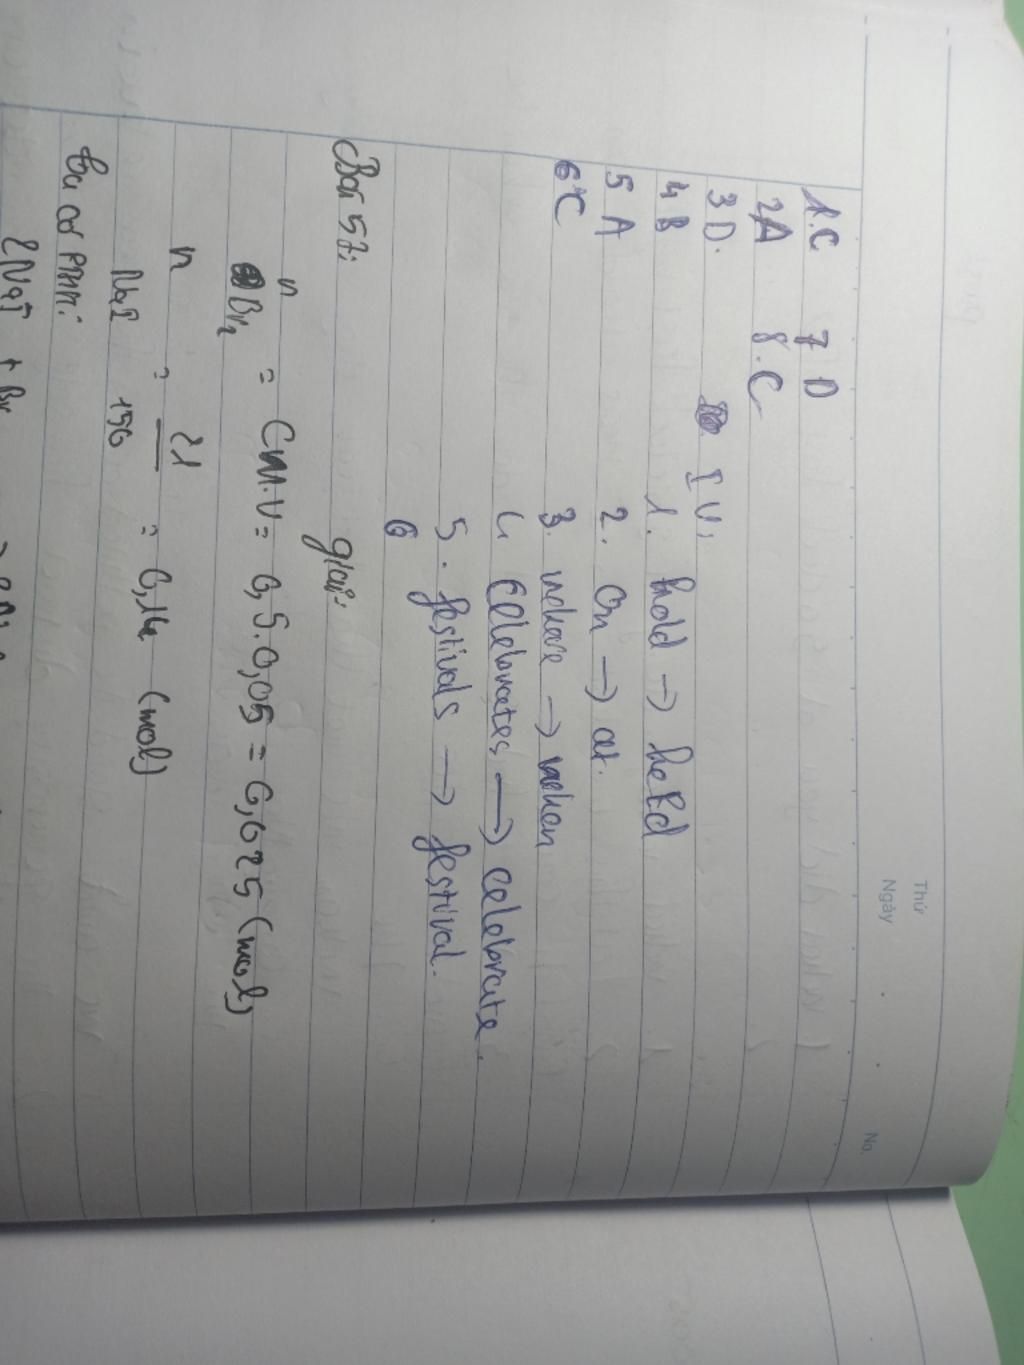 Thứ
Ngày
No.
1.C 7 D
2A 8.C
3 D.
4 B
5 A
6 C
IV,
1. hold → held
2. On → at.
3. where → when
4 celebrates → celebrate.
5. festivals → festival.
6
Bài 57:
giải:
n Br₂ = CM.V = 0,5.0,05 = 0,025 (mol)
n NaI = 21/150 = 0,14 (mol)
Ta có PTHH:
2NaI + Br